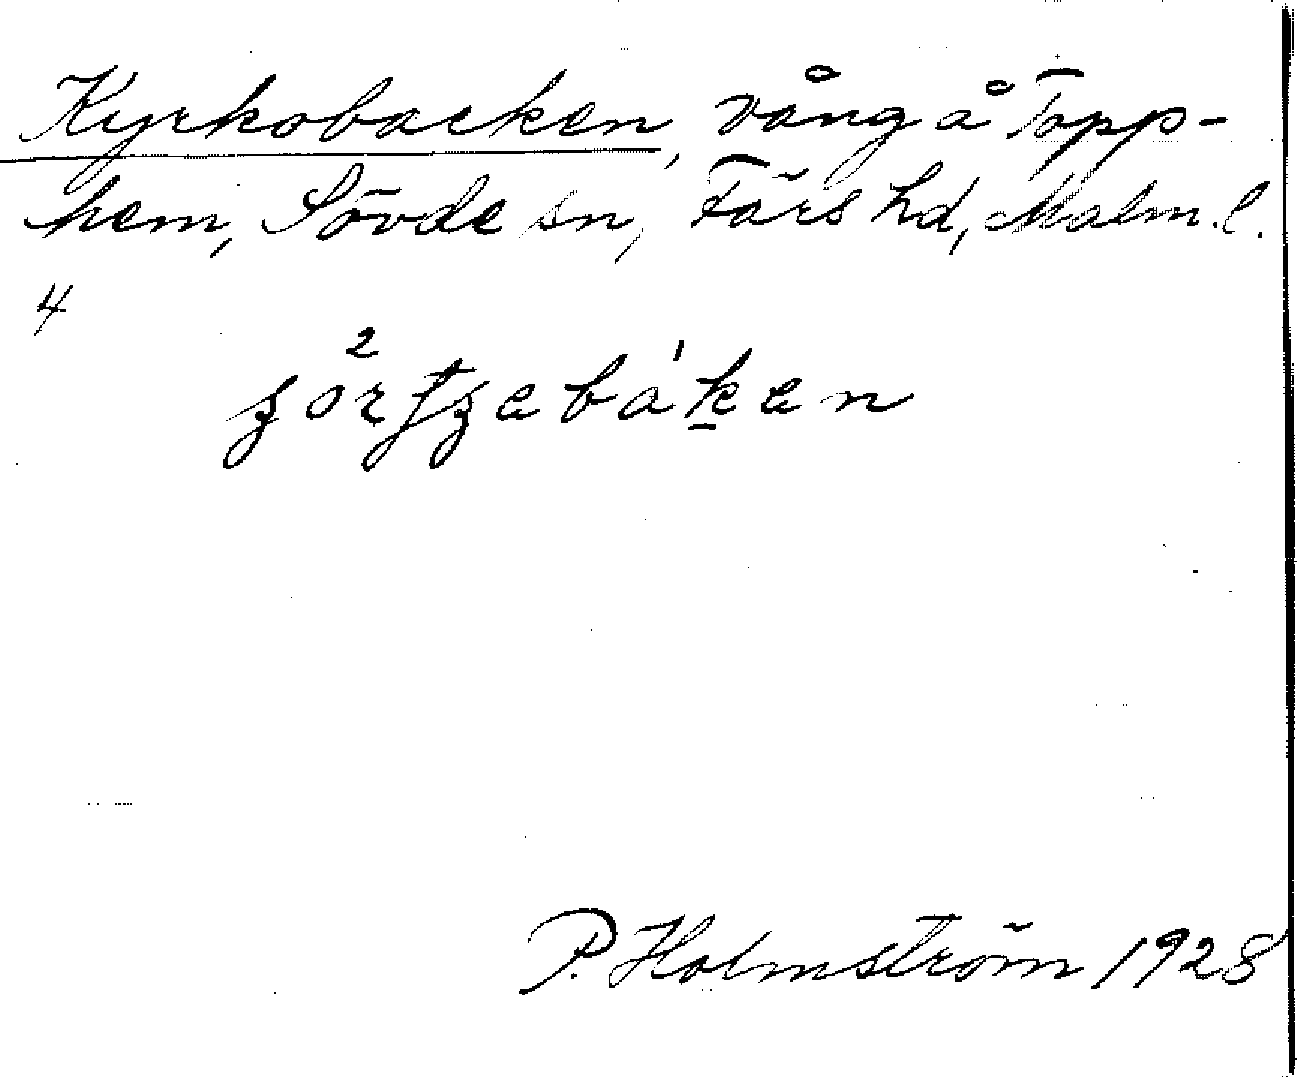 Kyrkobacken, vång å Topp-
hem, Sövde sn, Färs hd, Malm.l.
4
P. Holmström 1928